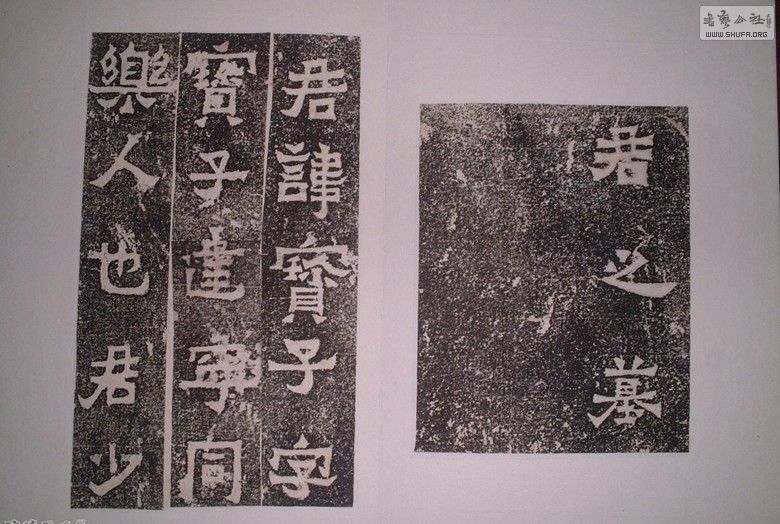 君之墓
君諱寶子字
寶子建寧同
樂人也君少
書藝公社
WWW.SHUFA.ORG